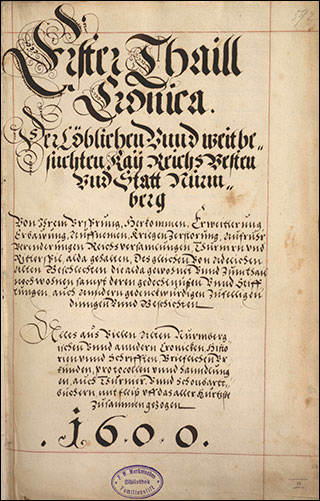 Erster Thaill
Cronica.
Der Löblichen Vnnd weit be-
suchten, Kaÿ: Reichs Vesten
Vnd Statt Nürm-
berg
Von Ihrem Vrsprung, Herkommen, Erweiterung
Erbawung, Auffnemen, Kriegen Zerstörung, Auffruhr
Verenderungen Reichsversamlungen Thurnirn vnd
Ritterspil, alda gehalten, Desgleichen Von Adelichen
alten Geschlechten die alda gewohnet Vnd Zum thail
noch wohnen sampt deren gedechtnüssen Vnnd Stiff-
tungen, auch Anndern gedenckwürdigen Zufelligen
dingen Vnnd Geschichten
Alles aus Vielen Alten Nürmberg
ischen Vnnd anndern Cronicken, Histo
rien vnnd Schrifften, Brieflichen Vr
kunden, protocollen vnnd handlung
en, auch Thurnir, Vnnd Schönbartt-
büchern, mit fleiß vff das aller kürtzste
Zusammen gezogen
.1.6.0.0.
Bibliothek